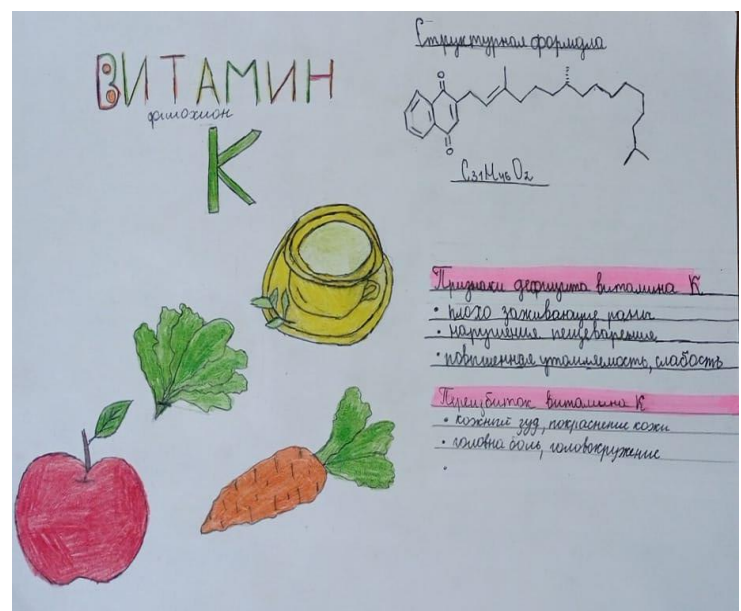 ВИТАМИН
филохион
К
Структурная формула
O
O
C31H46O2
Признаки дефицита витамина К
• плохо заживающие раны
• нарушения пещеварения
• повышенная утомляемость, слабость
Переизбыток витамина К
• кожный зуд, покраснение кожи
• головна боль, головокружение
•